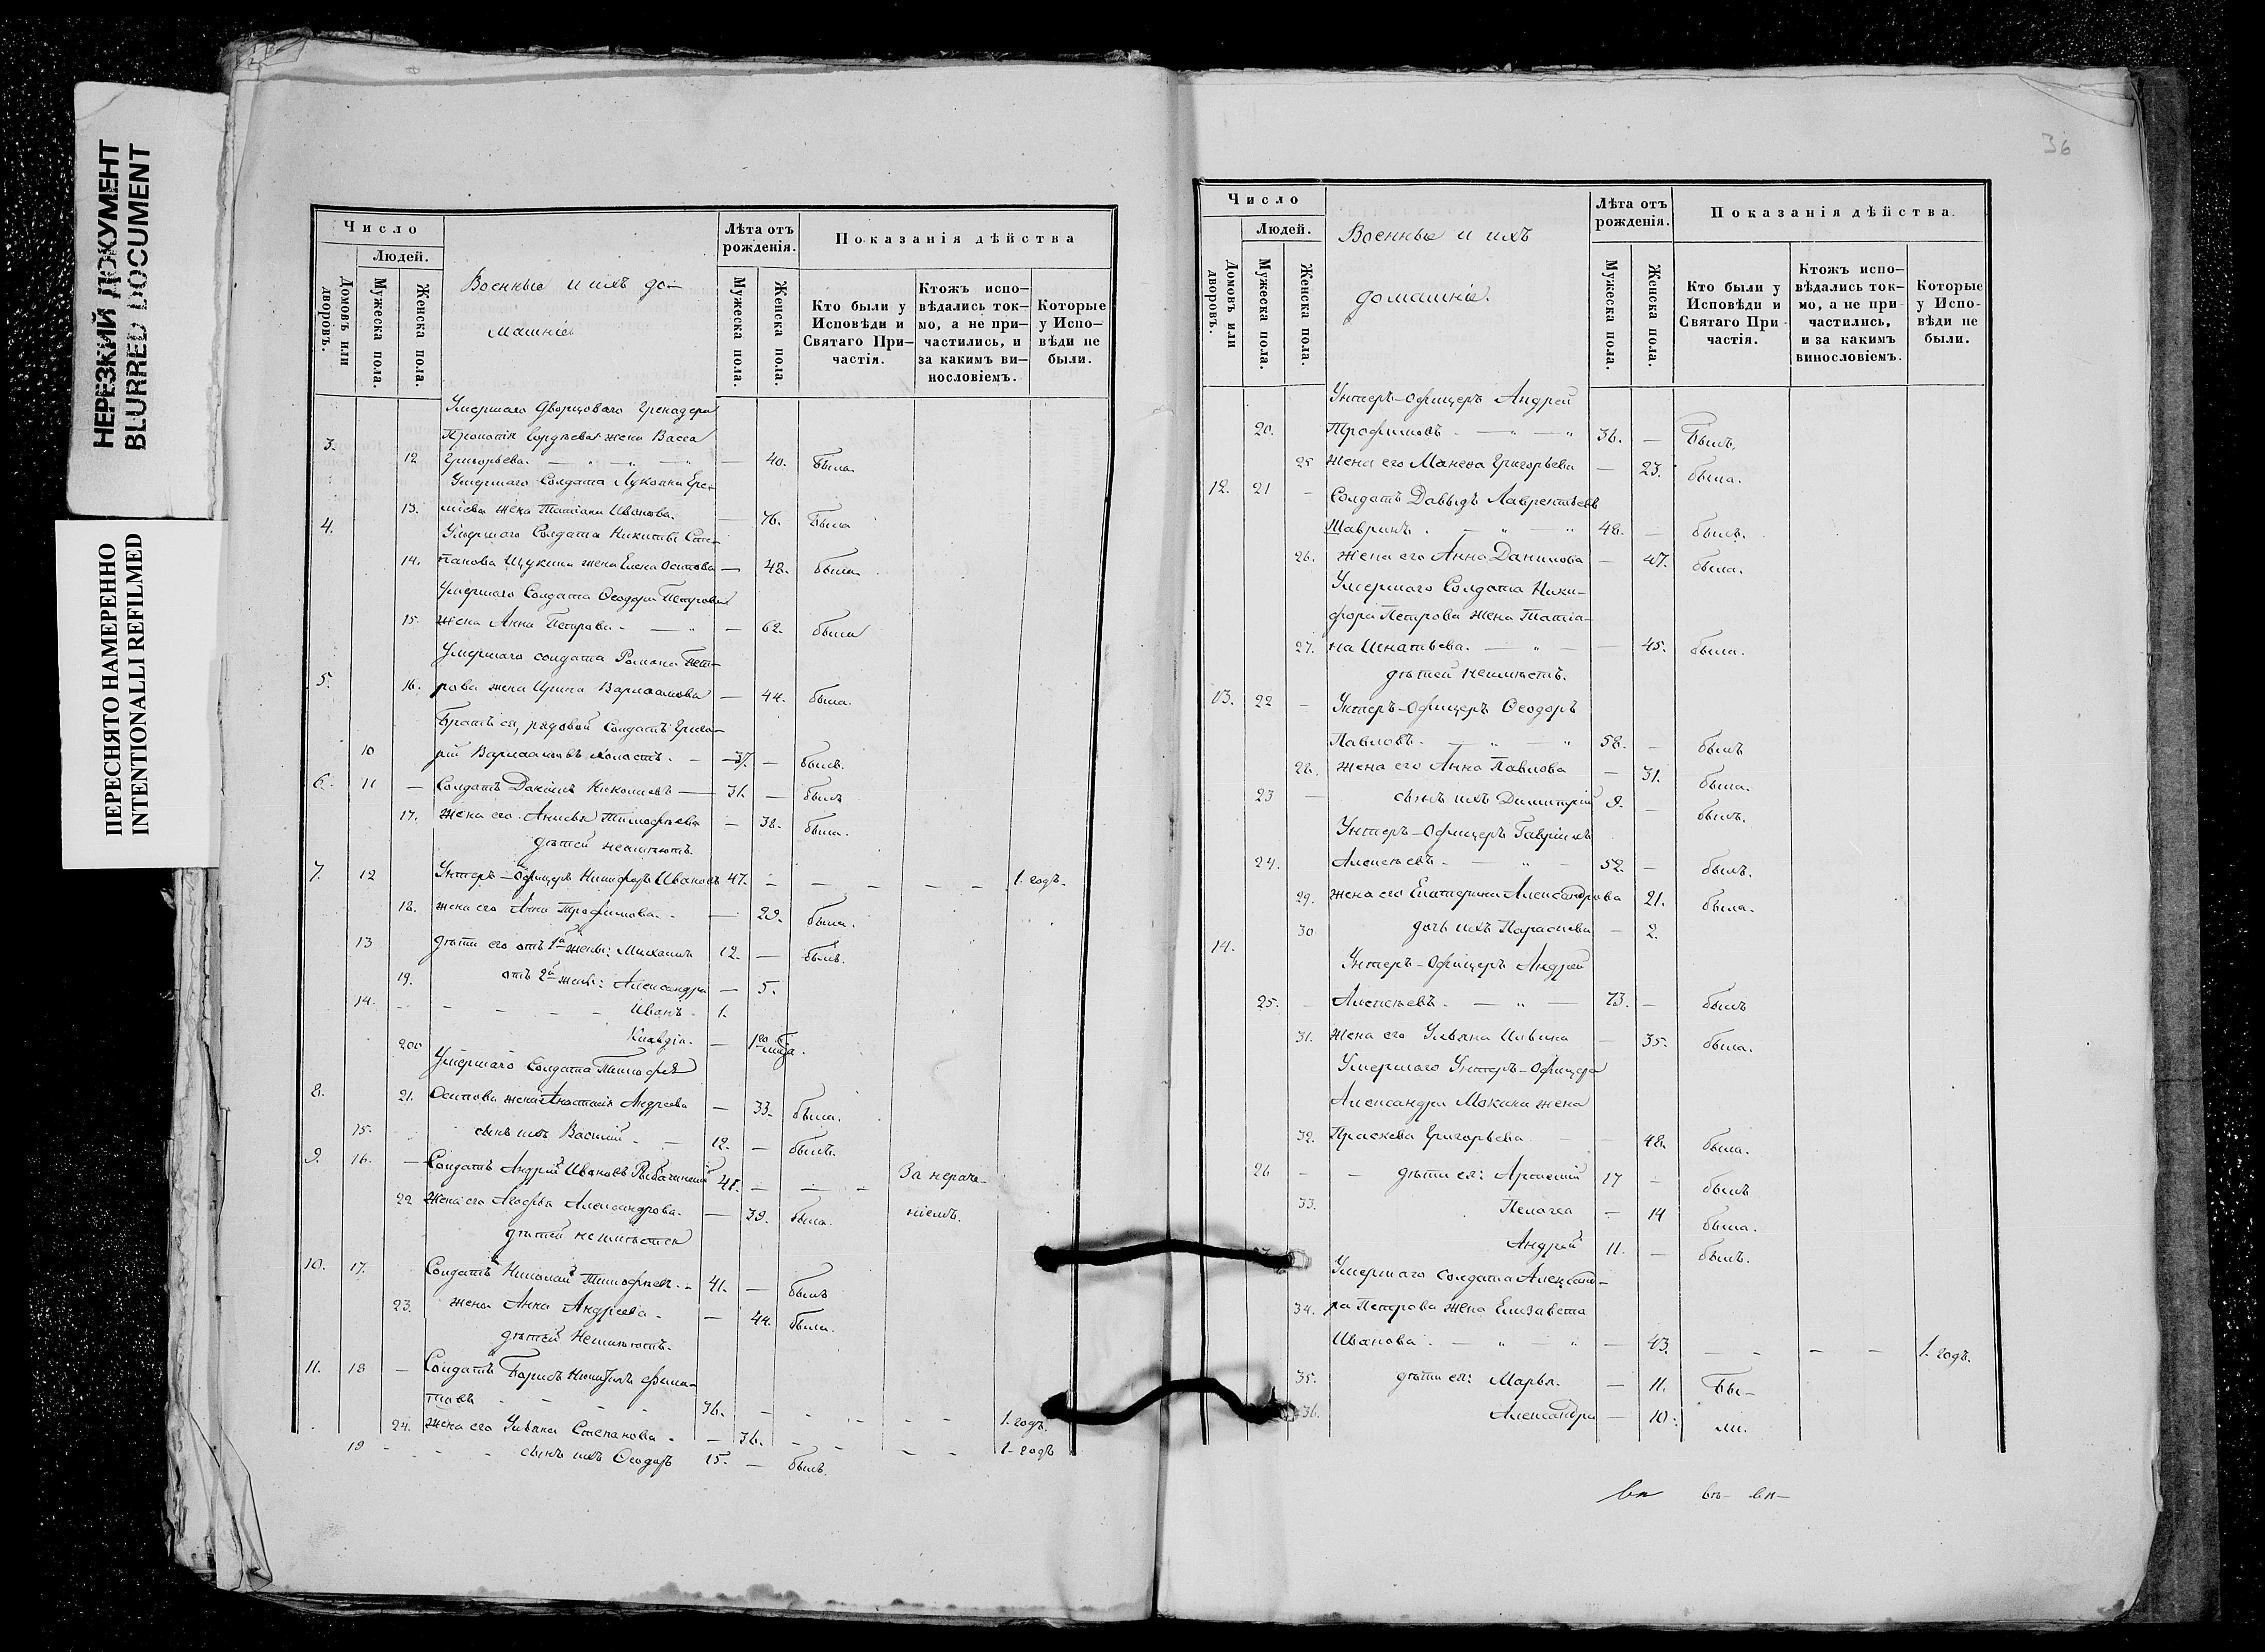 НЕРЕЗКИЙ ДОКУМЕНТ
BLURRED DOCUMENT
ПЕРЕСНЯТО НАМЕРЕННО
INTENTIONALLI REFILMED
Число
Людей.
Домовъ или дворовъ.
Мужеска пола.
Женска пола.
Военные и ихъ до-
машніе
Лѣта отъ рожденія.
Мужеска пола.
Женска пола.
Показанія дѣйства
Кто были у Исповѣди и Святаго При-частія.
Ктожъ испо-вѣдались ток-мо, а не при-частились, и за какимъ ви-нословіемъ.
Которые у Испо-вѣди не были.
Умершаго Дворцоваго Гренадера
3. жена Васса
12 Григорьева. — 40. Была.
Умершаго Солдата Лукояна Ере-
13. мѣева жена Татіана Иванова. — 76. Была
4. Умершаго Солдата Никиты Сте-
14. панова Щукина жена Елена Осипова — 48. была
Умершаго Солдата Ѳеодора Петрова
15. жена Анна Петрова — 62. была
Умершаго солдата Романа Пет-
5. 16. рова жена Ирина Варлаамова — 44. была.
Братъ ея, рядовой солдатъ Григо-
10 рій Варлаамовъ холостъ. — 37. — былъ.
6. 11 — Солдатъ Даніилъ Николаевъ — 31. — былъ
17. жена его Анисья Тимофѣева — 38. была.
дѣтей неимѣютъ.
7. 12 Унтеръ-Офицеръ Никифоръ Ивановъ 47. — — — — — 1. годъ.
18. жена его Анна Трофимова. — 29. была.
13 дѣти его отъ 1й жены: Михаилъ 12. — былъ.
19. отъ 2й жены: Александра — 5.
14. — — — — Иванъ. 1.
200 Клавдія. —
Умершаго Солдата Тимофея
8. 21. Осипова жена Анастасія Андреева — 33. была.
15. сынъ ихъ Василій — 12. — былъ.
9. 16. — Солдатъ Андрей Ивановъ 41. — — — За нераче-
22 жена его Агафья Александрова. — 39. была. ніемъ.
дѣтей неимѣетъ
10. 17. Солдатъ Николай Тимофѣевъ 41. — былъ
23. жена Анна Андреева — 44. была.
дѣтей Неимѣютъ.
11. 18 — Солдатъ Борисъ
36. — — — — — 1. годъ.
24. жена его Ульяна Степанова — 36. — — — — 1. годъ
19 — — — сынъ ихъ Ѳеодоръ 15. — былъ.
36
Число
Людей.
Домовъ или дворовъ.
Мужеска пола.
Женска пола.
Военные и ихъ
домашніе.
Лѣта отъ рожденія.
Мужеска пола.
Женска пола.
Показанія дѣйства.
Кто были у Исповѣди и Святаго При-частія.
Ктожъ испо-вѣдались ток-мо, а не при-частились, и за какимъ винословіемъ.
Которые у Испо-вѣди не были.
Унтеръ-Офицеръ Андрей
20. Трофимовъ. — „ — „ 36. — Былъ,
25 жена его Григорьева — 23. была.
12. 21 — Солдатъ Давыдъ Лаврентьевъ
Шавринъ. — „ — „ 48. — былъ.
26. жена его Анна Данилова — 47. была.
Умершаго Солдата Ники-
фора Петрова жена Татіа-
27. на Игнатьева. — „ — — 45. была.
дѣтей неимѣетъ.
13. 22 — Унтеръ-Офицеръ Ѳеодоръ
Павловъ. — „ — „ 58. — былъ
28. жена его Анна Павлова — 31. была.
23 — сынъ ихъ Димитрій 9. — былъ.
Унтеръ-Офицеръ Гавріилъ
24. Алексѣевъ. — „ — 52. — былъ.
29. жена его Екатерина Александрова 21. была.
30 дочь ихъ Параскева — 2.
14. Унтеръ-Офицеръ Андрей
25. — Алексѣевъ. — „ — 73. — былъ
31. жена его Ульяна Ильина — 35. была.
Умершаго Унтеръ-Офицера
Александра Мокина жена
32. Праскева Григорьева — — 48. была.
26 — — дѣти ея: Арсеній 17 — былъ
33. Пелагея — 14 была.
Андрей 11. — былъ.
Умершаго солдата Александ-
34. ра Петрова жена Елизавета
Иванова. — „ — „ — 43. — — — — 1. годъ.
35. дѣти ея: Марья. — 11. Бы-
36. Александра — 10. ли.